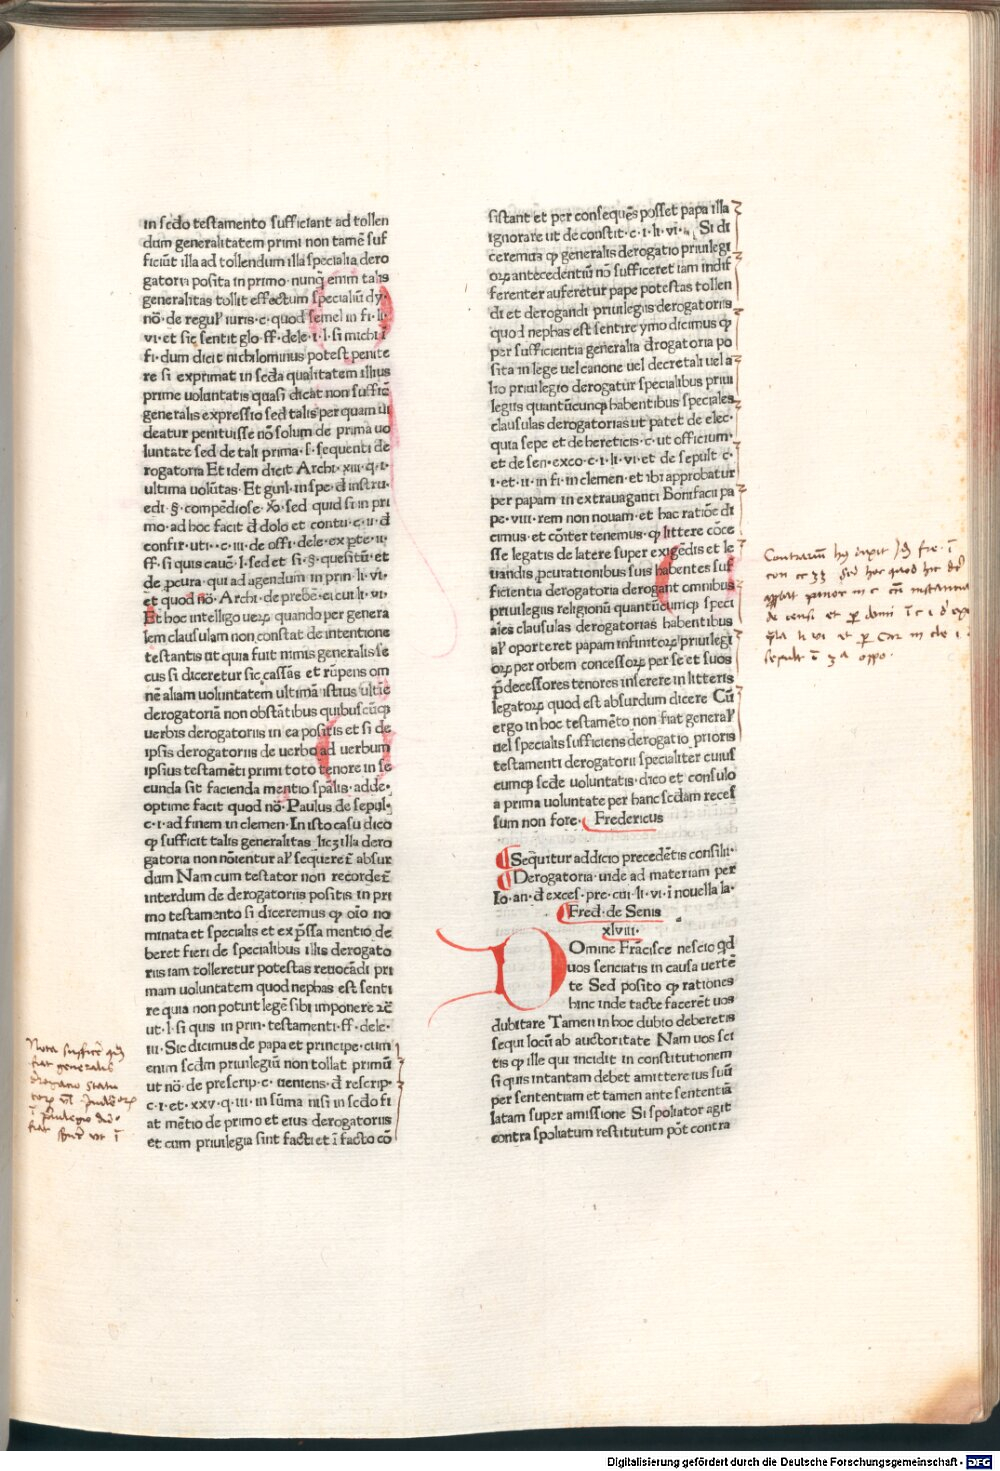 in scdo testamento sufficiant ad tollen
dum generalitatem primi non tamē suf
ficiūt illa ad tollendum illa specialia dero
gatoria posita in primo· nunꝗ̄ enim talis
generalitas tollit effectum specialiū dy·
nō· de regul̓ iuris·c·quod semel in fi·li·
vi·et sic sentit glo·ff·dele·i·l·si michi ī
fi·dum dicit nichilominus potest penite
re si exprimat in scđa qualitatem illius
prime voluntatis quasi dicat non suffic̄
generalis expressio sed talis per quam ui
deatur penituisse nō solum de prima uo
luntate sed de tali prima·ſ·sequenti de
rogatoria Et idem dicit Archi·xiii·q·i·
ultima volūtas·Et guil·in spe·đ instru·
edi·§·compēdiose·ꝟ·sed quid si in pri
mo·ad hoc facit đ dolo et contu·c·ii·đ
confir·uti··c·iii·de offi·dele·ex ꝑte·ii·
ff·si quis cauē·l·sed et si·§·quesitū·et
de ꝓcura·qui ad agendum in prin·li·vi·
et quod nō·Archi·de prebē·ei cui li·vi·
Et hoc intelligo ueꝝ quando per genera
lem clausulam non constat de intentione
testantis ut quia fuit nimis generalis se
cus si diceretur sic cassās et rūpens om
nē aliam uoluntatem ultimā istius ultīe
derogatoriā non obstātibus quibuscūꝗ
uerbis derogatoriis in ea positis et si de
ipsis derogatoriis de uerbo ad uerbum
ipsius testamēti primi toto tenore in se
cunda sit facienda mentio spālis·adde·
optime facit quod nō·Paulus de sepul·
c·i·ad finem in clemen·In isto casu dico
ꝙ sufficit talis generalitas licꝫ illa dero
gatoria non nōientur al̓ sequeretᷣ absur
dum Nam cum testator non recordetᷣ
interdum de derogatoriis positis in pri
mo testamento si diceremus ꝙ oīo no
minata et specialis et exp̄ssa mentio de
beret fieri de specialibus illis derogato
riis iam tolleretur potestas reuocādi pri
mam uoluntatem quod nephas est senti
re quia non potuit legē sibi imponere ⁊c̄
ut·l·si quis in prin·testamenti·ff·dele·
iii·Sic dicimus de papa et principe·cum
enim scđm priuilegiū non tollat primū
ut nō·de prescrip·c·ueniens·đ rescrip·
c·i·et·xxv·q·iii·in sūma nisi in scđo fi
at mētio de primo et eius derogatoriis
et cum priuilegia sint facti et ī facto cō
Nota
fiat generalis
sistant et per consequēs posset papa illa
ignorare ut de constit·c·i·li·vi··Si di
ceremus ꝙ generalis derogatio priuilegi
oꝝ antecedentiū nō sufficeret iam indif
ferenter auferetur pape potestas tollen
di et derogandi priuilegiis derogatoriis
quod nephas est sentire ymo dicimus ꝙ
per sufficientia generalia đrogatoria po
sita in lege uel canone uel decretali uel a
lio priuilegio derogatur specialibus priui
legiis quantūcunꝗ habentibus speciales
clausulas derogatorias ut patet de elec·
quia sepe et de hereticis·c·ut officium·
et de sen·exco·c·i·li·vi·et de sepult c·
i·et·ii·in fi·in clemen·et ibi approbatur
per papam in extrauaganti Bonifacii pa
pe·viii·rem non nouam·et hac ratiōe di
cimus et cōiter tenemus·ꝙ littere cōce
sse legatis de latere super exigēdis et le
uandis ꝓcurationibus suis habentes suf
ficientia derogatoria derogant omnibus
priuilegiis religionū quantūcumꝗ speci
ales clausulas derogatorias habentibus
al̓ oporteret papam infinitoꝝ priuilegi
oꝝ per orbem concessoꝝ per se et suos
p̄decessores tenores inserere in litteris
legatoꝝ quod est absurdum dicere Cū
ergo in hoc testamēto non fiat general̓
uel specialis sufficiens derogatio prioris
testamenti derogatorii specialiter cuius
cumꝗ scđe uoluntatis·dico et consulo
a prima uoluntate per hanc scđam reces
sum non fore· Fredericus
Sequitur addicio precedētis consilii·
Derogatoria·uide ad materiam per
Io·an·đ exces·pre·cui·li·vi·ī nouella la·
Fred·de Senis
xlviii·
Domine Frācisce nescio qđ
uos senciatis in causa uertē
te Sed posito ꝙ rationes
hinc inde tacte facerēt uos
dubitare Tamen in hoc dubio deberetis
sequi locū ab auctoritate Nam uos sci
tis ꝙ ille qui incidit in constitutionem
si quis intantam debet amittere ius suū
per sententiam et tamen ante sententiā
latam super amissione Si spoliator agit
contra spoliatum restitutum pōt contra
Digitalisierung gefördert durch die Deutsche Forschungsgemeinschaft · DFG